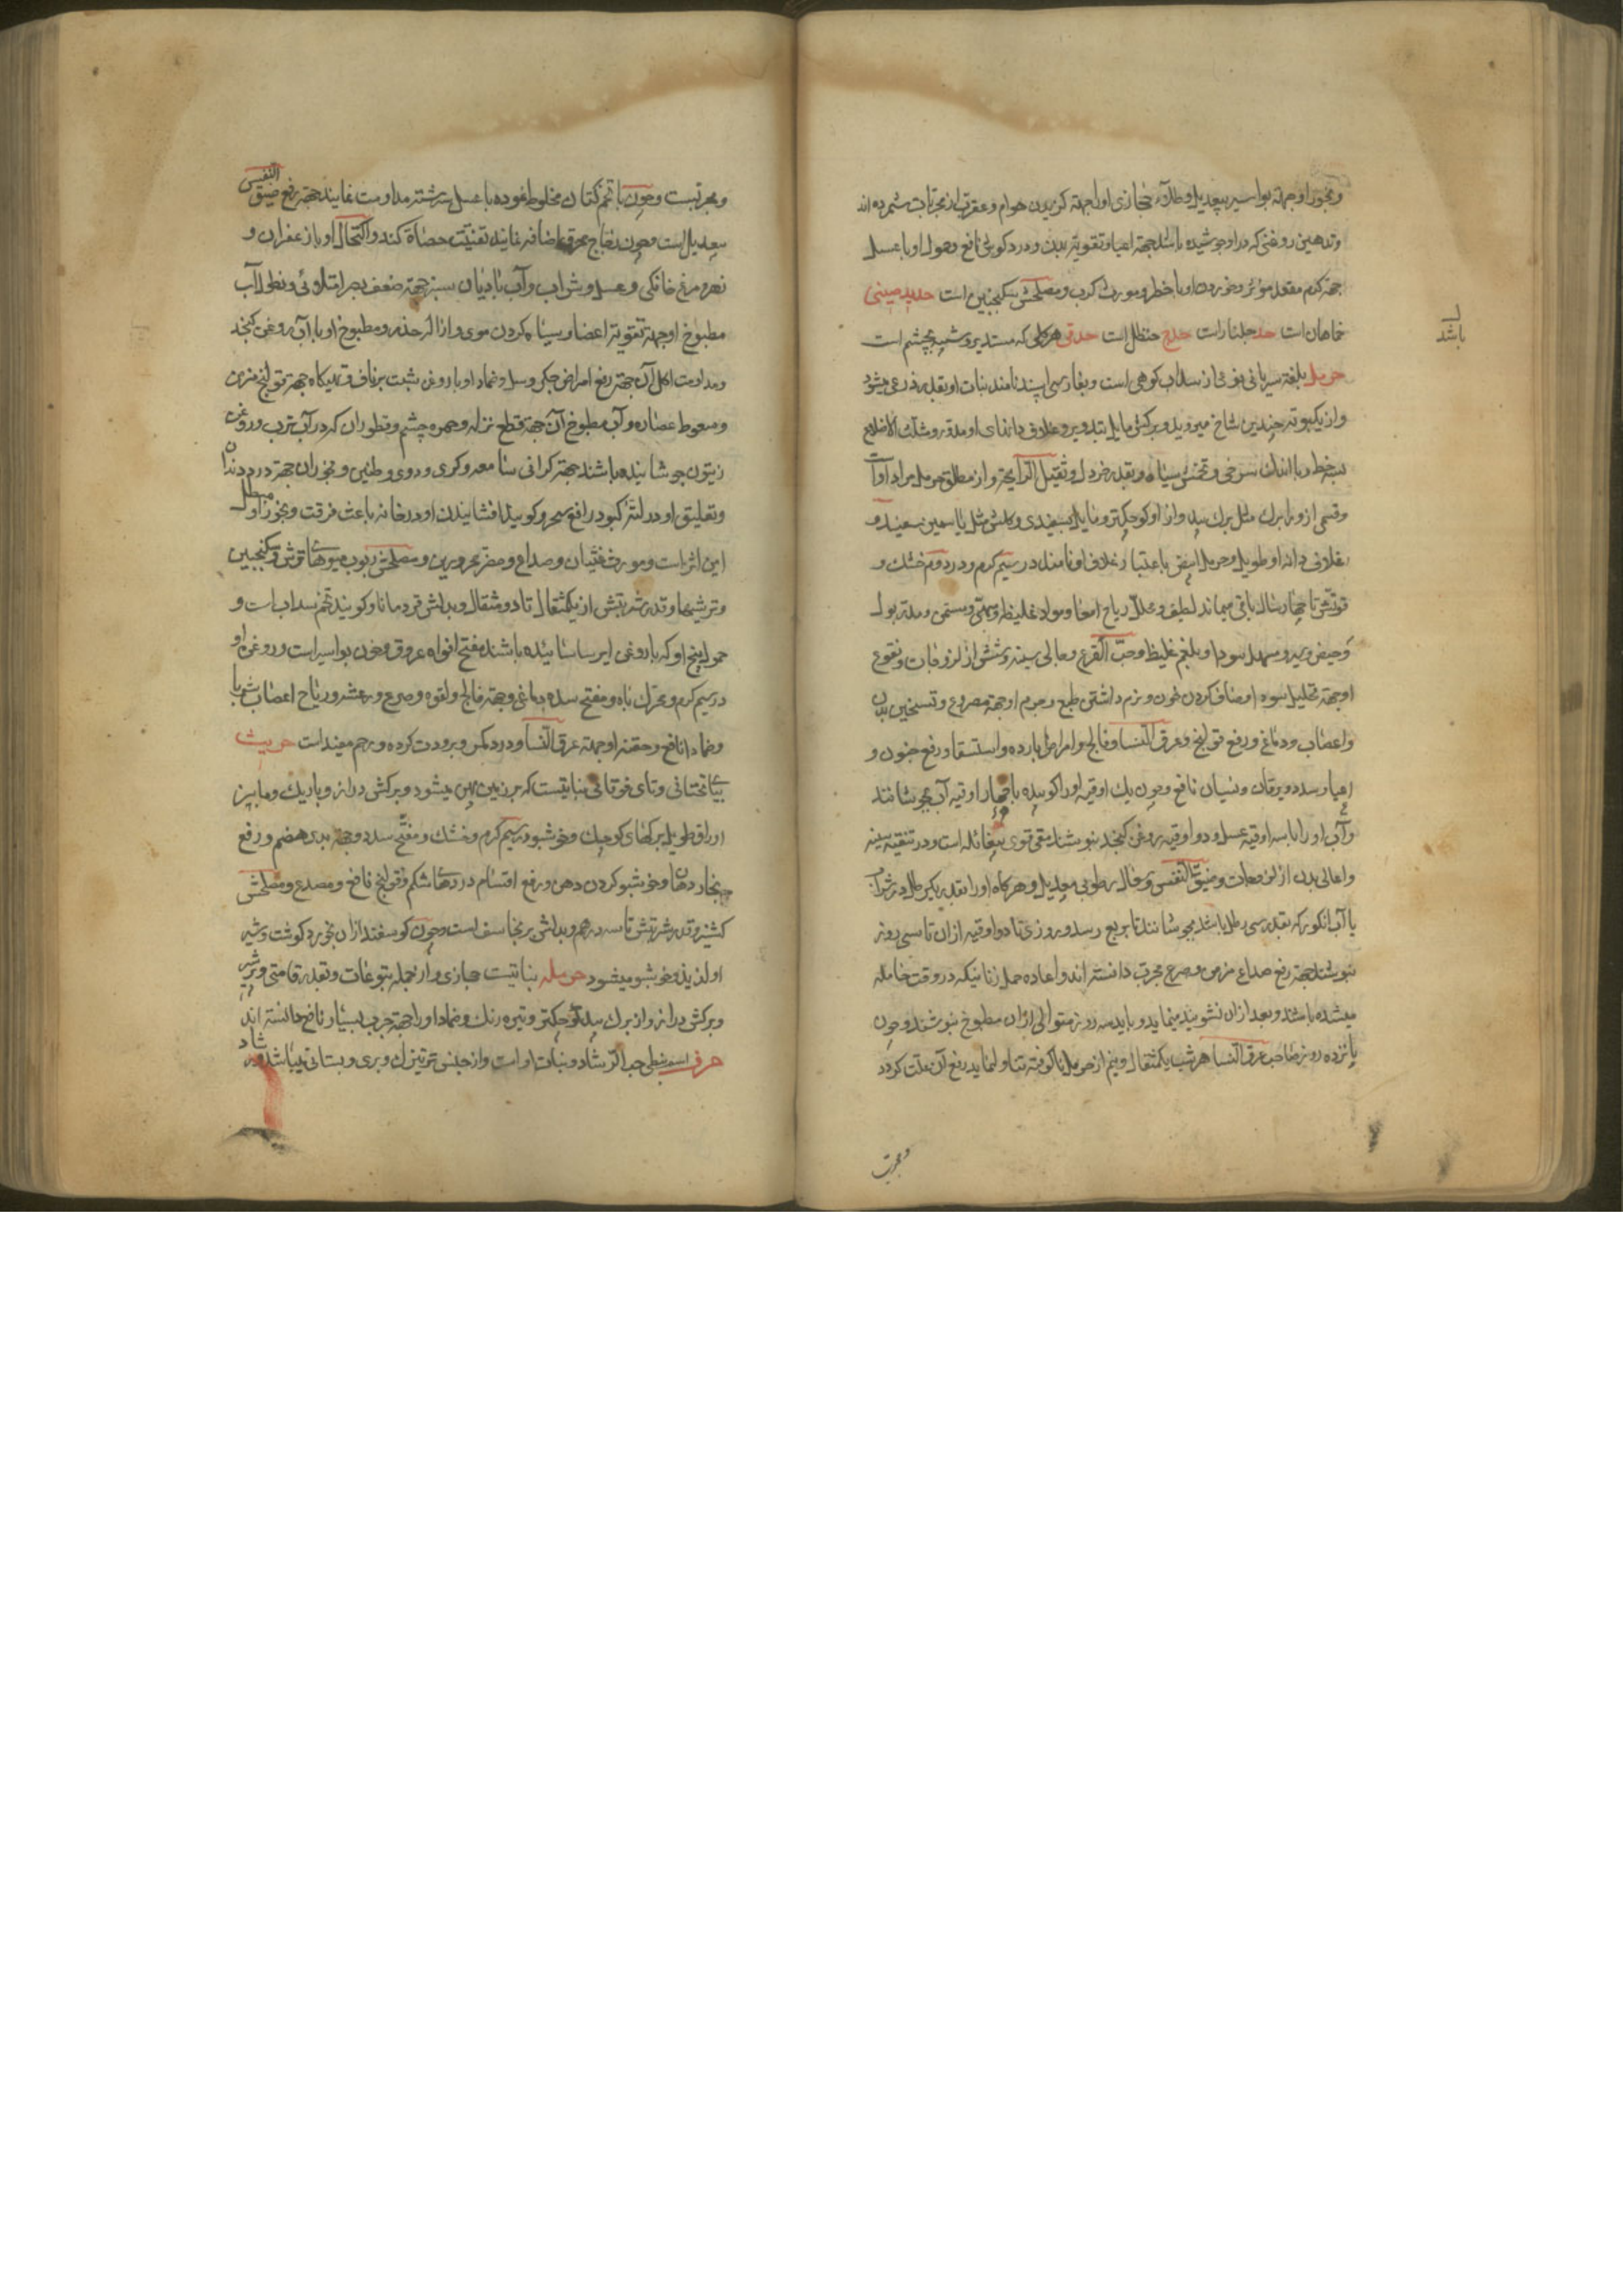 وبخور او جهة بواسیر بیعدیل وطلاء حجازی او جهة کزیدن هوام وعقرب از مجربات شمرده اند
وتدهین روغنی که در او جوشیده باشد جهة اعیا وتقویة بدن ودرد کوش نافع وحمول او با عسل
جهة کرم مقعد مؤثر وخوردن او با خطر ومورث کرب ومصلحش سکنجبین است حدید صینی
خماهان است حد جلنار است حدج حنظل است حدقی هر کلی که مستدیر وشبیه بچشم است
باشد
حرمل بلغة سریانی نوعی از سداب کوهی است وبفارسی اسپند نامند نبات او بقدر ذرعی میشود
واز یکبوته چندین شاخ میروید وبرکش مایل بتدویر وغلاف دانهای او مدور ومثلث الاضلاع
سه خط وبا اندک سرخی وتخمش سیاه وبقدر خردل وثقیل الرایحة واز مطلق حرمل مراد اوست
وقسمی از او را برک مثل برک بید واز او کوچکتر ومایل بسفیدی وکلش مثل یاسمین سفید و
غلاف دانه او طویل وحرمل ابیض باعتبار غلاف او نامند در سیم کرم ودر دوم خشک و
قوتش تا چهار سال باقی میماند لطیف ومحلل ریاح امعا ومواد غلیظه ومقئ ومسمن ومدر بول
وحیض وشیر ومسهل سودا وبلغم غلیظ وحب القرع وجالی سینه وشش از لزوجات ونقوع
او جهة تحلیل سودا وصاف کردن خون ونرم داشتن طبع وجرم او جهة مصروع وتسخین بدن
واعصاب ودماغ ورفع قولنج وعرق النسا وفالج وامراض بارده واستسقا ورفع جنون و
اخیار سدد ویرقان ونسیان نافع وچون یک اوقیه او را کوبیده با چهار اوقیه آب بجوشانند
وآب او را با سه اوقیه عسل ودو اوقیه روغن کنجد بنوشند مقئ قوی بیغائله است ودر تنقیه سینه
واعالی بدن از لزوجات وضیق النفس وسعال رطوبی بیعدیل وهرکاه او را بقدر یکرطل در شراب
یا آب انکور که بقدر سی رطل باشد بجوشانند تا بربع رسد وروزی تا دو اوقیه از ان تا سی روز
بنوشند جهة رفع صداع مزمن وصرع مجرب دانسته اند واعاده حمل زنانیکه در وقت حامله
میشده باشند وبعد از ان نشوند مینماید وباید سه روز متوالی از ان مطبوخ بنوشند وچون
پانزده روز صاحب عرق النسا هر شب یکمثقال ونیم از حرمل ناکوفته تناول نماید رفع آن علت کردد
ومجرب
ومجربست وچون با تخم کتان مخلوط نموده با عسل سرشته مداومت نمایند جهة رفع ضیق النفس
بیعدیل است وچون زجاج محرق اضافه نمایند تفتیت حصاة کند واکتحال او با زعفران و
زهره مرغ خانکی وعسل وشراب وآب بادیان سبز جهة ضعف بصر امتلائی ونطول آب
مطبوخ او جهة تقویة اعضا وسیاه کردن موی وازاله خدر ومطبوخ او با آب روغن کنجد
ومداومت اکل آن جهة رفع امراض جکر وسل وضماد او با روغن شبت بر ناف وتهیکاه جهة قولنج مزمن
وسعوط عصاره وآب مطبوخ آن جهة قطع نزله وحمره چشم وقطور ان که در آب ترب وروغن
زیتون جوشانیده باشند جهة کرانی سامعه وکری ودوی وطنین وبخور ان جهة درد دندان
وتعلیق او در لته کبود رافع سحر وکویند افشانیدن او در خانه باعث فرقت وبخور او مبطل
این اثر است ومورث غثیان وصداع ومضر محرورین ومصلحش ربوب میوهای ترش وسکنجبین
وترشیها وقدر شربتش از یکمثقال تا دو مثقال وبدلش قردمانا وکویند تخم سداب است و
حمول بیخ او که با روغن ایرسا سائیده باشند مفتح افواه عروق وخون بواسیر است وروغن او
در سیم کرم ومحرک باه ومفتح سده دماغی وجهة فالج ولقوه وصرع ورعشه وریاح اعصاب شربا
وضمادا نافع وحقنه او جهة عرق النسا ودرد کمر وبرودت کرده ورحم مفید است حربث
بیای تحتانی وتای فوقانی نباتیست که بر زمین پهن میشود وبرکش دراز وباریک ومابین
اوراق طویل برکهای کوچک وخوشبو در سیم کرم وخشک ومفتح سدد وجهة بدی هضم ورفع
بخار دهان وخوشبو کردن دهن ورفع اقسام دردهای شکم وقولنج نافع ومصدع ومصلحش
کشنیز وقدر شربتش تا سه درهم وبدلش برنجاسف است وچون کوسفند از ان بخورد کوشت وشیر
او لذیذ وخوشبو میشود حرمله نباتیست حجازی واز جمله یتوعات وبقدر قامتی وپرشیر
وبرکش دراز واز برک بید کوچکتر وتیره رنک وضماد او را جهة جرب بسیار نافع دانسته اند
حرف اسم نبطی حب الرشاد ونبات او است واز جنس تره تیزک وبری وبستانی میباشد ودر